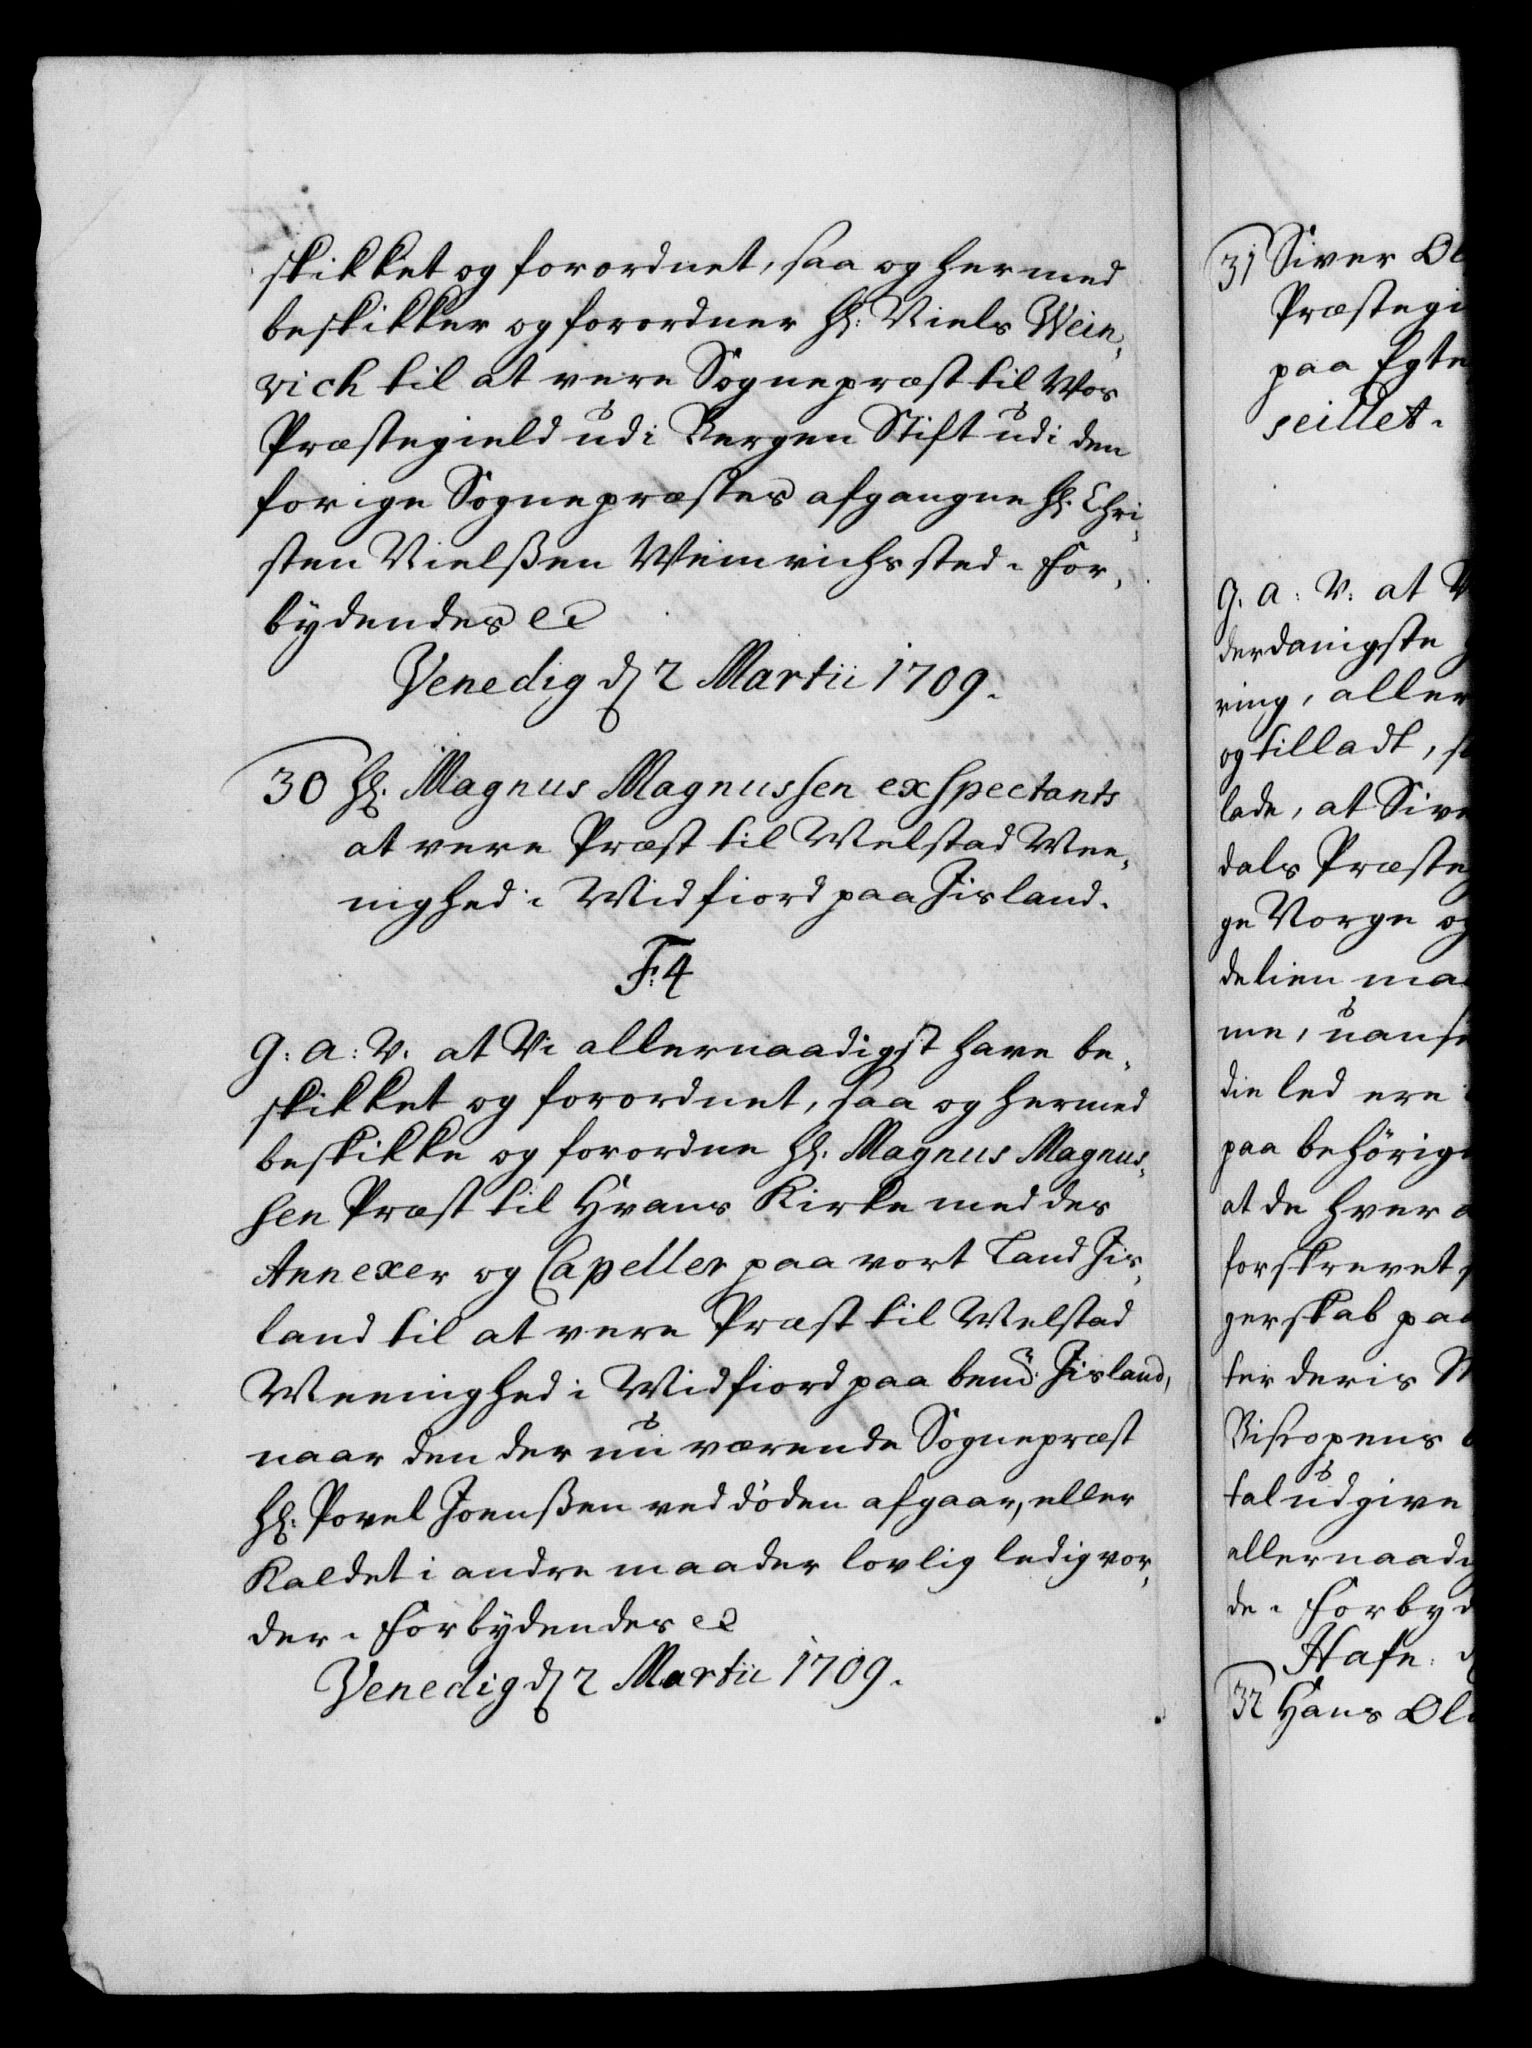 skikket og forordnet, saa og hermed
beskikker og forordner Hr: Niels Wein,
rich til at vere Sognepræst til Wos
Præstegield udi Bergen Stift udi den
forige Sognepræstes afgangne Hr. Chri,
sten Nielßen Weinrichs sted. For,
bydendes etc
Venedig d. 2 Martii 1709.
30 Hr. Magnus Magnussen exspectants
at vere Præst til Melstad Mee,
nighed i Midfiord paa Jisland.
F: 4
G: A: V. at Vi allernaadigst have be,
skikket og forordnet, saa og hermed
beskikke og forordne Hr. Magnus Magnus,
sen Præst til Hvans Kirke med des
Annexer og Capeller paa vort Land Jis,
land til at vere Præst til Melstad
Meenighed i Midfiord paa bemte: Jisland,
naar den der nu værende Sognepræst
Hr: Povel Joenßen ved döden afgaar, eller
Kaldet i andre maader lovlig ledig vor,
der. Forbydendes etc
Venedig d. 2 Martii 1709.
31 Siver Ol
Præstegi
paa Egte
seillet.
G. A: V: at V
derdanigste
ring, aller
og tilladt, s
lade, at Sive
dals Præste
ge Norge og
delien ma
me, uanse
die led ere
paa behörig
at de hver
forskrevet
gerskab paa
ter deris
Bispens
tal udgive
allernaadi
de. Forbyd
Hafn: d
32 Hans Ol